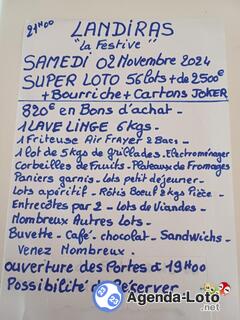 21H00
LANDIRAS
"la Festive"
SAMEDI 02 NOVEMBRE 2024
SUPER LOTO 56 lots + de 2500€
+ Bourriche + Cartons JOKER
820€ en Bons d'achat -
1 LAVE LINGE 6 kgs -
1 Friteuse Air Frayer 2 Bacs -
1 lot de 5 kg de grillades - Electroménager
Corbeilles de Fruits - Plateaux de Fromages
Paniers garnis - Lots petit dejeuner -
Lots apéritif - Rôtis Bœuf 2 kgs Pièce -
Entrecôtes par 2 - Lots de Viandes -
Nombreux Autres Lots -
Buvette - Café - chocolat - Sandwichs -
Venez Nombreux -
ouverture des Portes à 19H00
Possibilité de Réserver
Agenda-Loto.net